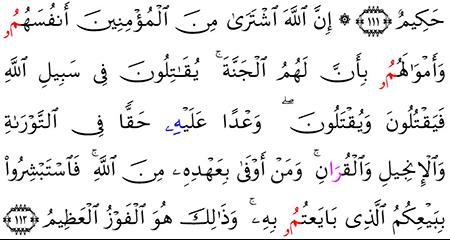 حَكِيمٌ ١١١ ۞ إِنَّ ٱللَّهَ ٱشْتَرَىٰ مِنَ ٱلْمُؤْمِنِينَ أَنفُسَهُمُۥ
وَأَمْوَٰلَهُمُۥ بِأَنَّ لَهُمُ ٱلْجَنَّةَ ۚ يُقَٰتِلُونَ فِى سَبِيلِ ٱللَّهِ
فَيَقْتُلُونَ وَيُقْتَلُونَ ۖ وَعْدًا عَلَيْهِۦ حَقًّا فِى ٱلتَّوْرَىٰةِ
وَٱلْإِنجِيلِ وَٱلْقُرَانِ ۚ وَمَنْ أَوْفَىٰ بِعَهْدِهِۦ مِنَ ٱللَّهِ ۚ فَٱسْتَبْشِرُوا۟
بِبَيْعِكُمُ ٱلَّذِى بَايَعْتُمُۥ بِهِۦ ۚ وَذَٰلِكَ هُوَ ٱلْفَوْزُ ٱلْعَظِيمُ ١١٢